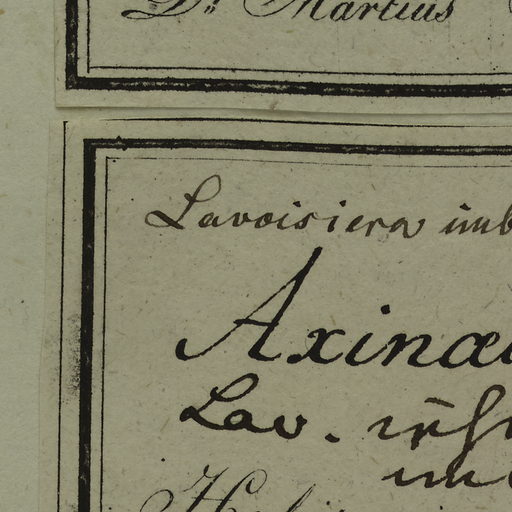 Dr. Martius
Lavoisiera imb
Axinæ
Lav.
im